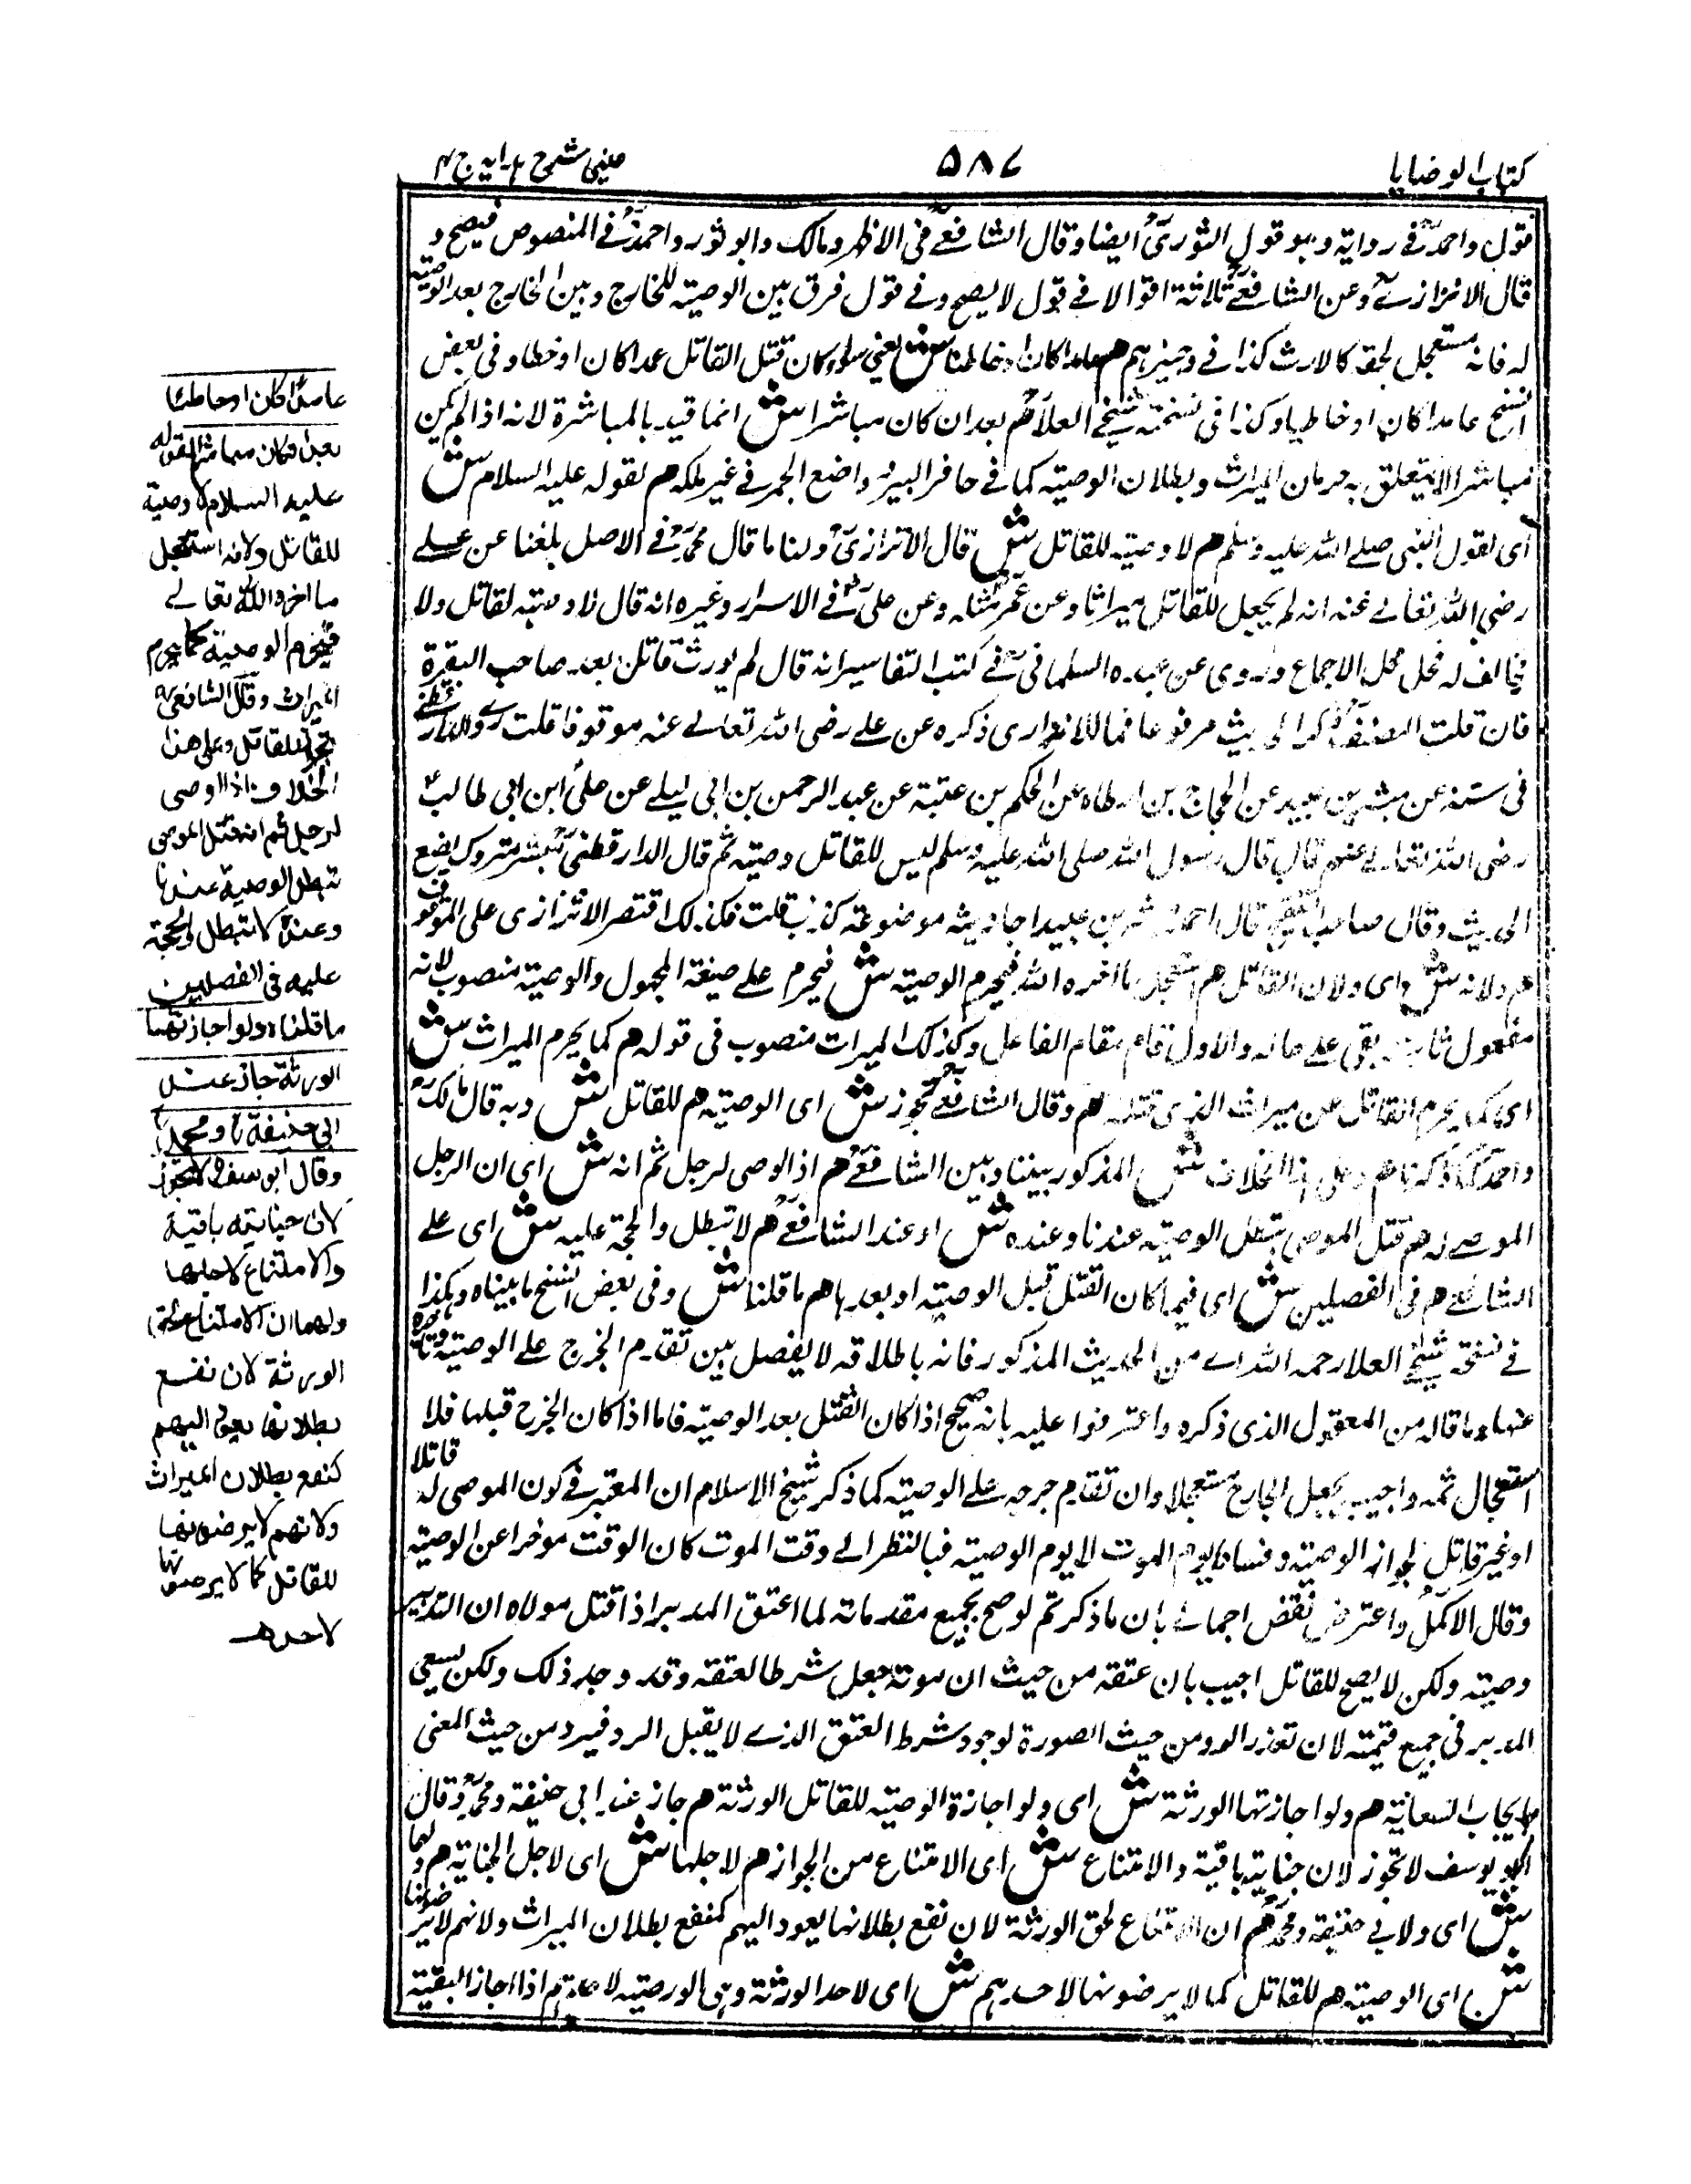 كتاب الوصايا
٥٨٧
عيني شرح هدايه ج ٤
قول واحمدؒ في رواية وهو قول الثوريؒ ايضا وقال الشافعيؒ في الاظهر ومالك وابو ثور واحمدؒ في المنصوص فيصح و
قال الاترازيؒ وعن الشافعيؒ ثلاثة اقوالا في قول لا يصح وفي قول فرق بين الوصية للخارج وبين الخارج بعد الوصية
له فانه مستعجل لحقه كالارث كذا في وجيزهم هم عامدا كان او خاطئا ش يعني سواء كان قتل القاتل عمدا كان او خطاء وفي بعض
النسخ عامدا كان او خاطيا وكذا في نسخة شيخي العلاؒ هم بعد ان كان مباشرا ش انما قيد بالمباشرة لانه اذا لم يكن
مباشرا لا يتعلق به حرمان الميراث وبطلان الوصية كما في حافر البير واضع الحجر في غير ملكه هم لقوله عليه السلام ش
اي لقول النبي صلى الله عليه وسلم هم لا وصية للقاتل ش قال الاترازيؒ ولنا ما قال محمدؒ في الاصل بلغنا عن علي
رضي الله تعالى عنه انه لم يجعل للقاتل ميراثا وعن عمرؓ مثله وعن عليؓ في الاسرار وغيره انه قال لا وصية لقاتل ولا
يخالف له فحل محل الاجماع وروى عن عبيده السلماني في كتب التفاسير انه قال لم يورث قاتلن بعد صاحب البقرة
فان قلت المصنفؒ ذكر الحديث مرفوعا فما للاترازي ذكره عن علي رضي الله تعالى عنه موقوفا قلت روى الدارقطني
في سننه عن مبشر بن عبيد عن الحجاج بن ارطاه عن الحكم بن عتبة عن عبد الرحمن بن ابي ليلى عن علي ابن ابي طالب
رضي الله تعالى عنهم قال قال رسول الله صلى الله عليه وسلم ليس للقاتل وصية ثم قال الدارقطنيؒ مبشر متروك يضع
الحديث وقال صاحب التنقيح قال احمد مبشر بن عبيد احاديثه موضوعة كذب قلت فكذلك اقتصر الاترازي على الموقوف
هم ولانه ش اي ولان القاتل هم استعجل ما اخره الله فيحرم الوصية ش فيحرم على صيغة المجهول والوصية منصوب لانه
مفعول ثان بقي على حاله والاول قام مقام الفاعل وكذلك الميراث منصوب في قوله هم كما يحرم الميراث ش
اي كما يحرم القاتل عن ميراث الذي قتله هم وقال الشافعيؒ تجوز ش اي الوصية هم للقاتل ش وبه قال مالكؒ
واحمدؒ كما ذكرنا هم وعلى هذا الخلاف ش المذكور بيننا وبين الشافعيؒ هم اذا اوصى لرجل ثم انه ش اي ان الرجل
الموصى له هم قتل الموصي تبطل الوصية عندنا وعنده ش او عند الشافعيؒ هم لا تبطل والحجة عليه ش اي على
الشافعي هم في الفصلين ش اي فيما كان القتل قبل الوصية او بعدها هم ما قلنا ش وفي بعض النسخ ما بيناه وهكذا
في نسخة شيخي العلا رحمه الله اي من الحديث المذكور فانه باطلاقه لا يفصل بين تقدم الجرح على الوصية وتاخره
عنها وما قاله من المعقول الذي ذكره واعترضوا عليه بانه صحيح اذا كان القتل بعد الوصية فاما اذا كان الجرح قبلها فلا
استعجال ثمه واجيب بجعل الجارح مستعجلا وان تقدم جرحه على الوصية كما ذكر شيخ الاسلام ان المعتبر في كون الموصى له قاتلا
او غير قاتل لجواز الوصية وفسادها يوم الموت لا يوم الوصية فبالنظر الى وقت الموت كان الوقت موخرا عن الوصية
وقال الاكملؒ واعترض بنقض اجمالي بان ما ذكرتم لو صح بجميع مقدماته لما اعتق المدبر اذا قتل مولاه ان التدبير
وصية ولكن لا يصح للقاتل اجيب بان عتقه من حيث ان موته جعل شرطا لعتقه وقد وجد ذلك ولكن يسعى
المدبر في جميع قيمته لان تعذر الرد من حيث الصورة لوجود شرط العتق الذي لا يقبل الرد فيرد من حيث المعنى
بايجاب السعاية هم ولو اجازتها الورثة ش اي ولو اجازة الوصية للقاتل الورثة هم جاز عند ابي حنيفة ومحمدؒ وقال
ابو يوسف لا تجوز لان جنايته باقية والامتناع ش اي الامتناع من الجواز هم لاجلها ش اي لاجل الجناية هم ولهما
ش اي ولابي حنيفة ومحمدؒ هم ان الامتناع لحق الورثة لان نفع بطلانها يعود اليهم كنفع بطلان الميراث ولانهم لا يرضونها
ش اي الوصية هم للقاتل كما لا يرضونها لاحدهم ش اي لاحد الورثة وهي الوصية لاحدهم اذا اجاز البقية
عامدا كان او خاطئا
بعد ان كان مباشرا لقوله
عليه السلام لا وصية
للقاتل ولانه استعجل
ما اخره الله تعالى
فيحرم الوصية كما يحرم
الميراث وقال الشافعيؒ
تجوز للقاتل وعلى هذا
الخلاف اذا اوصى
لرجل ثم انه قتل الموصي
تبطل الوصية عندنا
وعنده لا تبطل والحجة
عليه في الفصلين
ما قلناه ولو اجازتها
الورثة جاز عند
ابي حنيفةؒ ومحمدؒ
وقال ابو يوسفؒ لا تجوز
لان جنايته باقية
والامتناع لاجلها
ولهما ان الامتناع لحق
الورثة لان نفع
بطلانها يعود اليهم
كنفع بطلان الميراث
ولانهم لا يرضونها
للقاتل كما لا يرضونها
لاحدهم